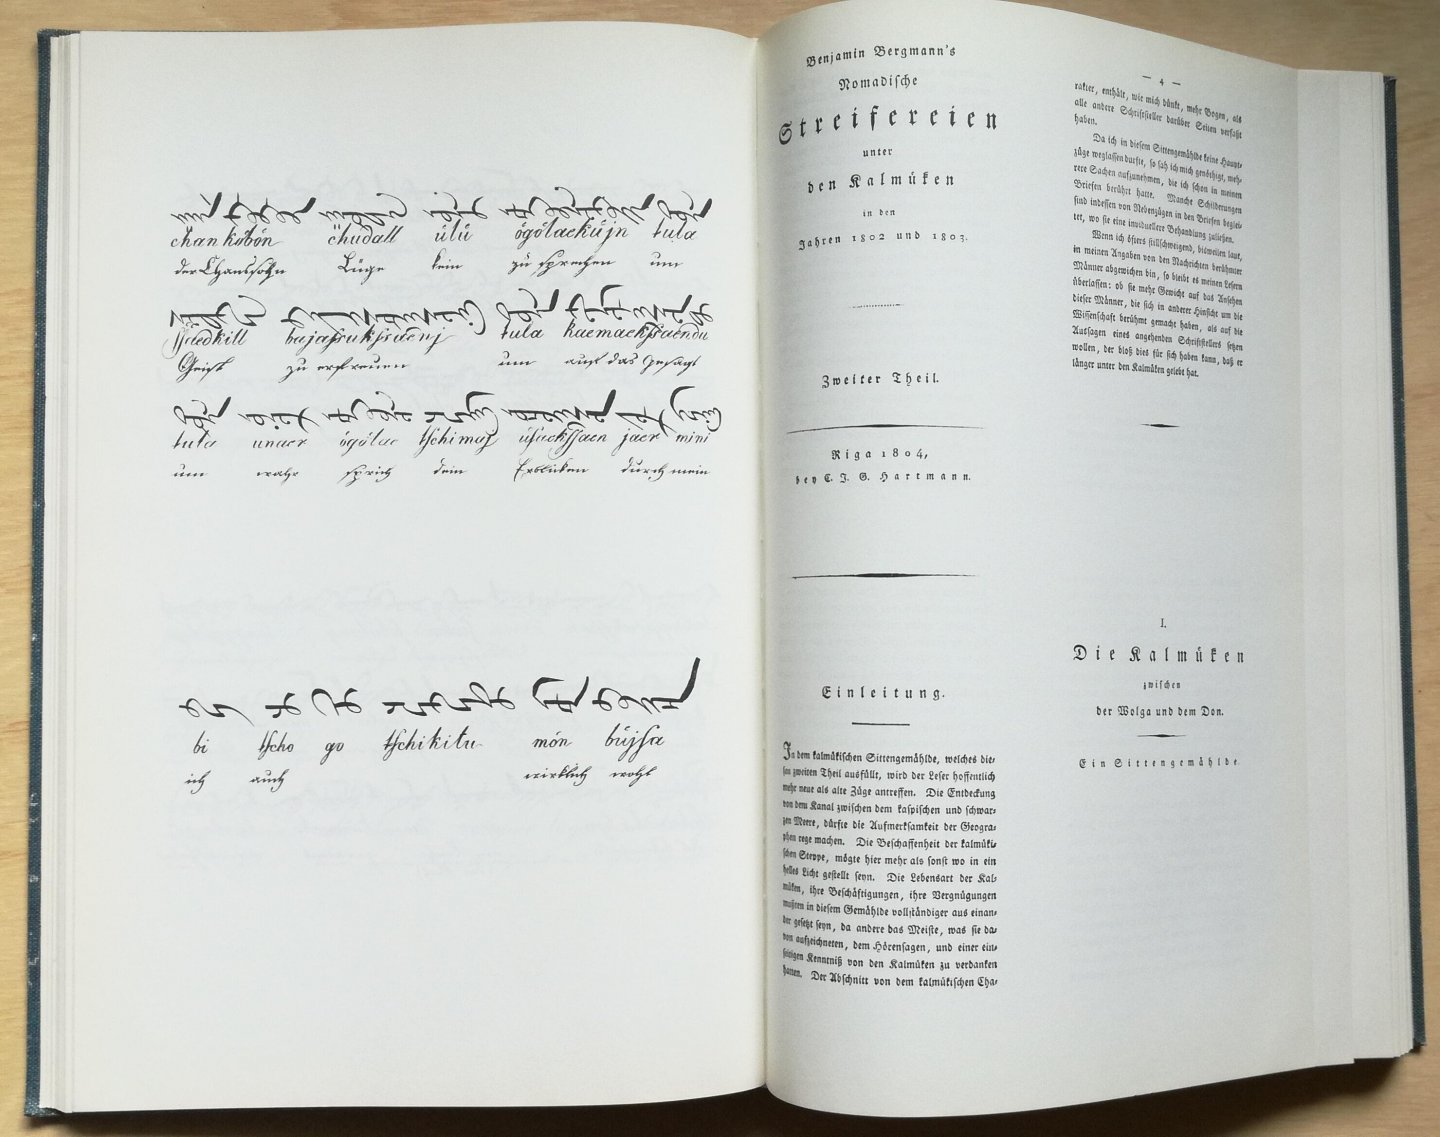 chan köbön chudall ülü ögölaeküjn tula
der Chanssohn Lüge kein zu sprechen um
ssaedkill bajassukssaenj tula kaemaekssaendu
Geist zu erfreuen um auf das gesagt
tula unaer ögölae tschimaj üsaekssaen jaer mini
um wahr sprich dein Erblicken durch mein
bi tscho go tschikitu mön büjsa
ich auch wirklich wohl
Benjamin Bergmann's
Nomadische
Streifereien
unter
den Kalmüken
in den
Jahren 1802 und 1803.
Zweiter Theil.
Riga 1804,
bey C. J. G. Hartmann.
Einleitung.
In dem kalmükischen Sittengemählde, welches die-
sen zweiten Theil ausfüllt, wird der Leser hoffentlich
mehr neue als alte Züge antreffen. Die Entdeckung
von dem Kanal zwischen dem kaspischen und schwar-
zen Meere, dürfte die Aufmerksamkeit der Geogra-
phen rege machen. Die Beschaffenheit der kalmüki-
schen Steppe, mögte hier mehr als sonst wo in ein
helles Licht gestellt seyn. Die Lebensart der Kal-
müken, ihre Beschäftigungen, ihre Vergnügungen
mußten in diesem Gemählde vollständiger aus einan-
der gesetzt seyn, da andere das Meiste, was sie da-
von aufzeichneten, dem Hörensagen, und einer ein-
seitigen Kenntniß von den Kalmüken zu verdanken
hatten. Der Abschnitt von dem kalmükischen Cha-
— 4 —
rakter, enthält, wie mich dünkt, mehr Bogen, als
alle andere Schriftsteller darüber Seiten verfaßt
haben.
Da ich in diesem Sittengemählde keine Haupt-
züge weglassen durfte, so sah ich mich genöthigt, meh-
rere Sachen aufzunehmen, die ich schon in meinen
Briefen berührt hatte. Manche Schilderungen
sind indessen von Nebenzügen in den Briefen beglei-
tet, wo sie eine inviduellere Behandlung zuließen.
Wenn ich öfters stillschweigend, bisweilen laut,
in meinen Angaben von den Nachrichten berühmter
Männer abgewichen bin, so bleibt es meinen Lesern
überlassen: ob sie mehr Gewicht auf das Ansehen
dieser Männer, die sich in anderer Hinsicht um die
Wissenschaft berühmt gemacht haben, als auf die
Aussagen eines angehenden Schriftstellers setzen
wollen, der bloß dies für sich haben kann, daß er
länger unter den Kalmüken gelebt hat.
I.
Die Kalmüken
zwischen
der Wolga und dem Don.
Ein Sittengemählde